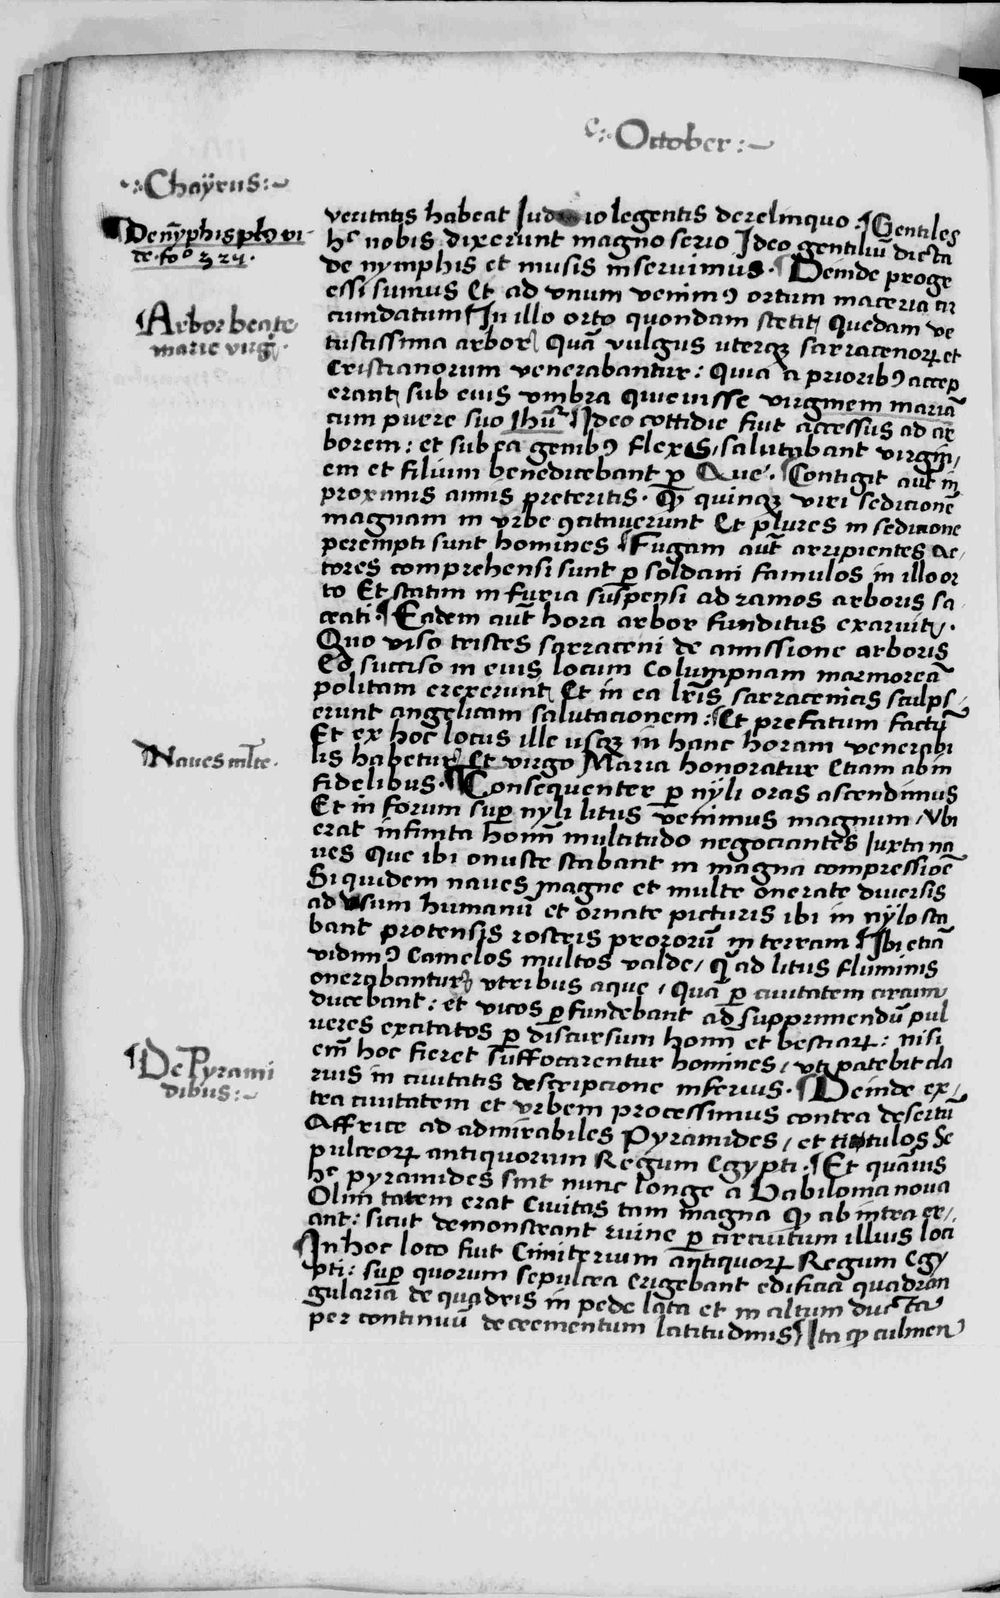 October
Chaÿrus
veritatis habeat Iudicio legentis derelinquo. ¶ Gentiles
De nẏphis plꝰ vi-
hec nobis dixerunt magno serio Ideo gentiliū dicta
de. fo. 324.
de nymphis et musis inseruimus. ¶ Deinde progr
essi sumus Et ad vnum venimꝰ ortum maceria cir
¶ Arbor beate
cumdatum ¶ In illo orto quondam stetit Quedam ve
marie virgͥ.
tustissima arbor Quā vulgus uterqꝫ sarracenorꝝ et
Cristianorum venerabantur: Quia a prioribꝰ accep
erant sub eius vmbra Quievisse virginem mariā
cum puero suo Ihū ¶ Ideo cottidie fiut accessus ad ar
borem: et sub ea genibꝰ flexis, salutabant virgin,
em et filium benedicebant ꝑ Aue. ¶ Contigit aut̄ in
proximis annis preteritis. Qꝫ quinqꝫ viri sedicionē
magnam in vrbe ꝯcitaverunt Et plures in sedicione
perempti sunt homines ¶ Fugam aut̄ arripientes ac,
tores comprehensi sunt ꝑ soldani famulos in illo or
to Et statim in furia suspensi ad ramos arboris sa
crati. ¶ Eadem aut̄ hora arbor funditus exaruit.
Quo viso tristes sarraceni de amissione arboris
Eo succiso in eius locum Columpnam marmoreā
politam erexerunt Et in ea lr̄is sarracenicis sculps,
erunt angelicam salutacionem: ¶ Et prefatum factū
Et ex hoc locus ille usqꝫ in hanc horam venerabi
Naves ml̄te.
lis habetur Et virgo Maria honoratur Etiam ab in
fidelibus. ¶ Consequenter ꝑ nÿli oras ascendimus
Et in forum suꝑ nÿli litus venimus magnum, Vbi
erat infinita hoīm multitudo negociantes Iuxta na
ues Que ibi onuste stabant in magna compressiōe
Siquidem naues magne et multe onerate diuersis
ad vsum humanū et ornate picturis ibi in nÿlo sta
bant protensis rostris prororū in terram ¶ Ibi etiā
vidimꝰ Camelos multos valde, Qui ad litus fluminis
onerabantur vtribus aque, Quā ꝑ ciuitatem circum
ducebant: et vicos ꝑfundebant ad supprimendū pul
ueres excitatos ꝑ discursum hoīm et bestiarꝝ: nisi
¶ De Pyrami
em̄ hoc fieret suffocarentur homines, vti patebit cla
dibus:
rius in ciuitatis descripcione inferius. ¶ Deinde ex,
tra ciuitatem et vrbem processimus contra desertū
Affrice ad admirabiles Pyramides, et titulos se
pulcrorꝝ antiquorum Regum Egypti. ¶ Et quāuis
hec pyramides sint nunc longe a Babilonia nova
Olim tamen erat Ciuitas tam magna Qꝫ ab intra er,
ant: sicut demonstrant ruine ꝑ circuitum illius loci
In hoc loco fuit Cimiterium antiquorꝝ Regum Egy
pti: suꝑ quorum sepulcra Erigebant edificia quadran
gularia de quadris in pede lata et in altum ducta
per continuū decrementum latitudinis ¶ Ita qꝫ culmen